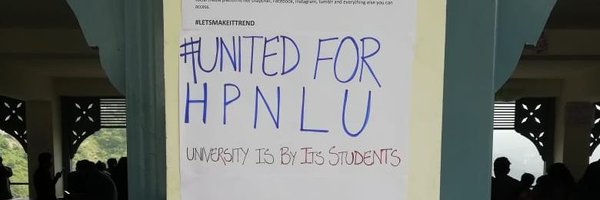 social media platforms like Snapchat, Facebook, Instagram, tumblr and everything else you can
access.
#LETSMAKEITTREND
#UNITED FOR
HPNLU
UNIVERSITY IS BY ITS STUDENTS